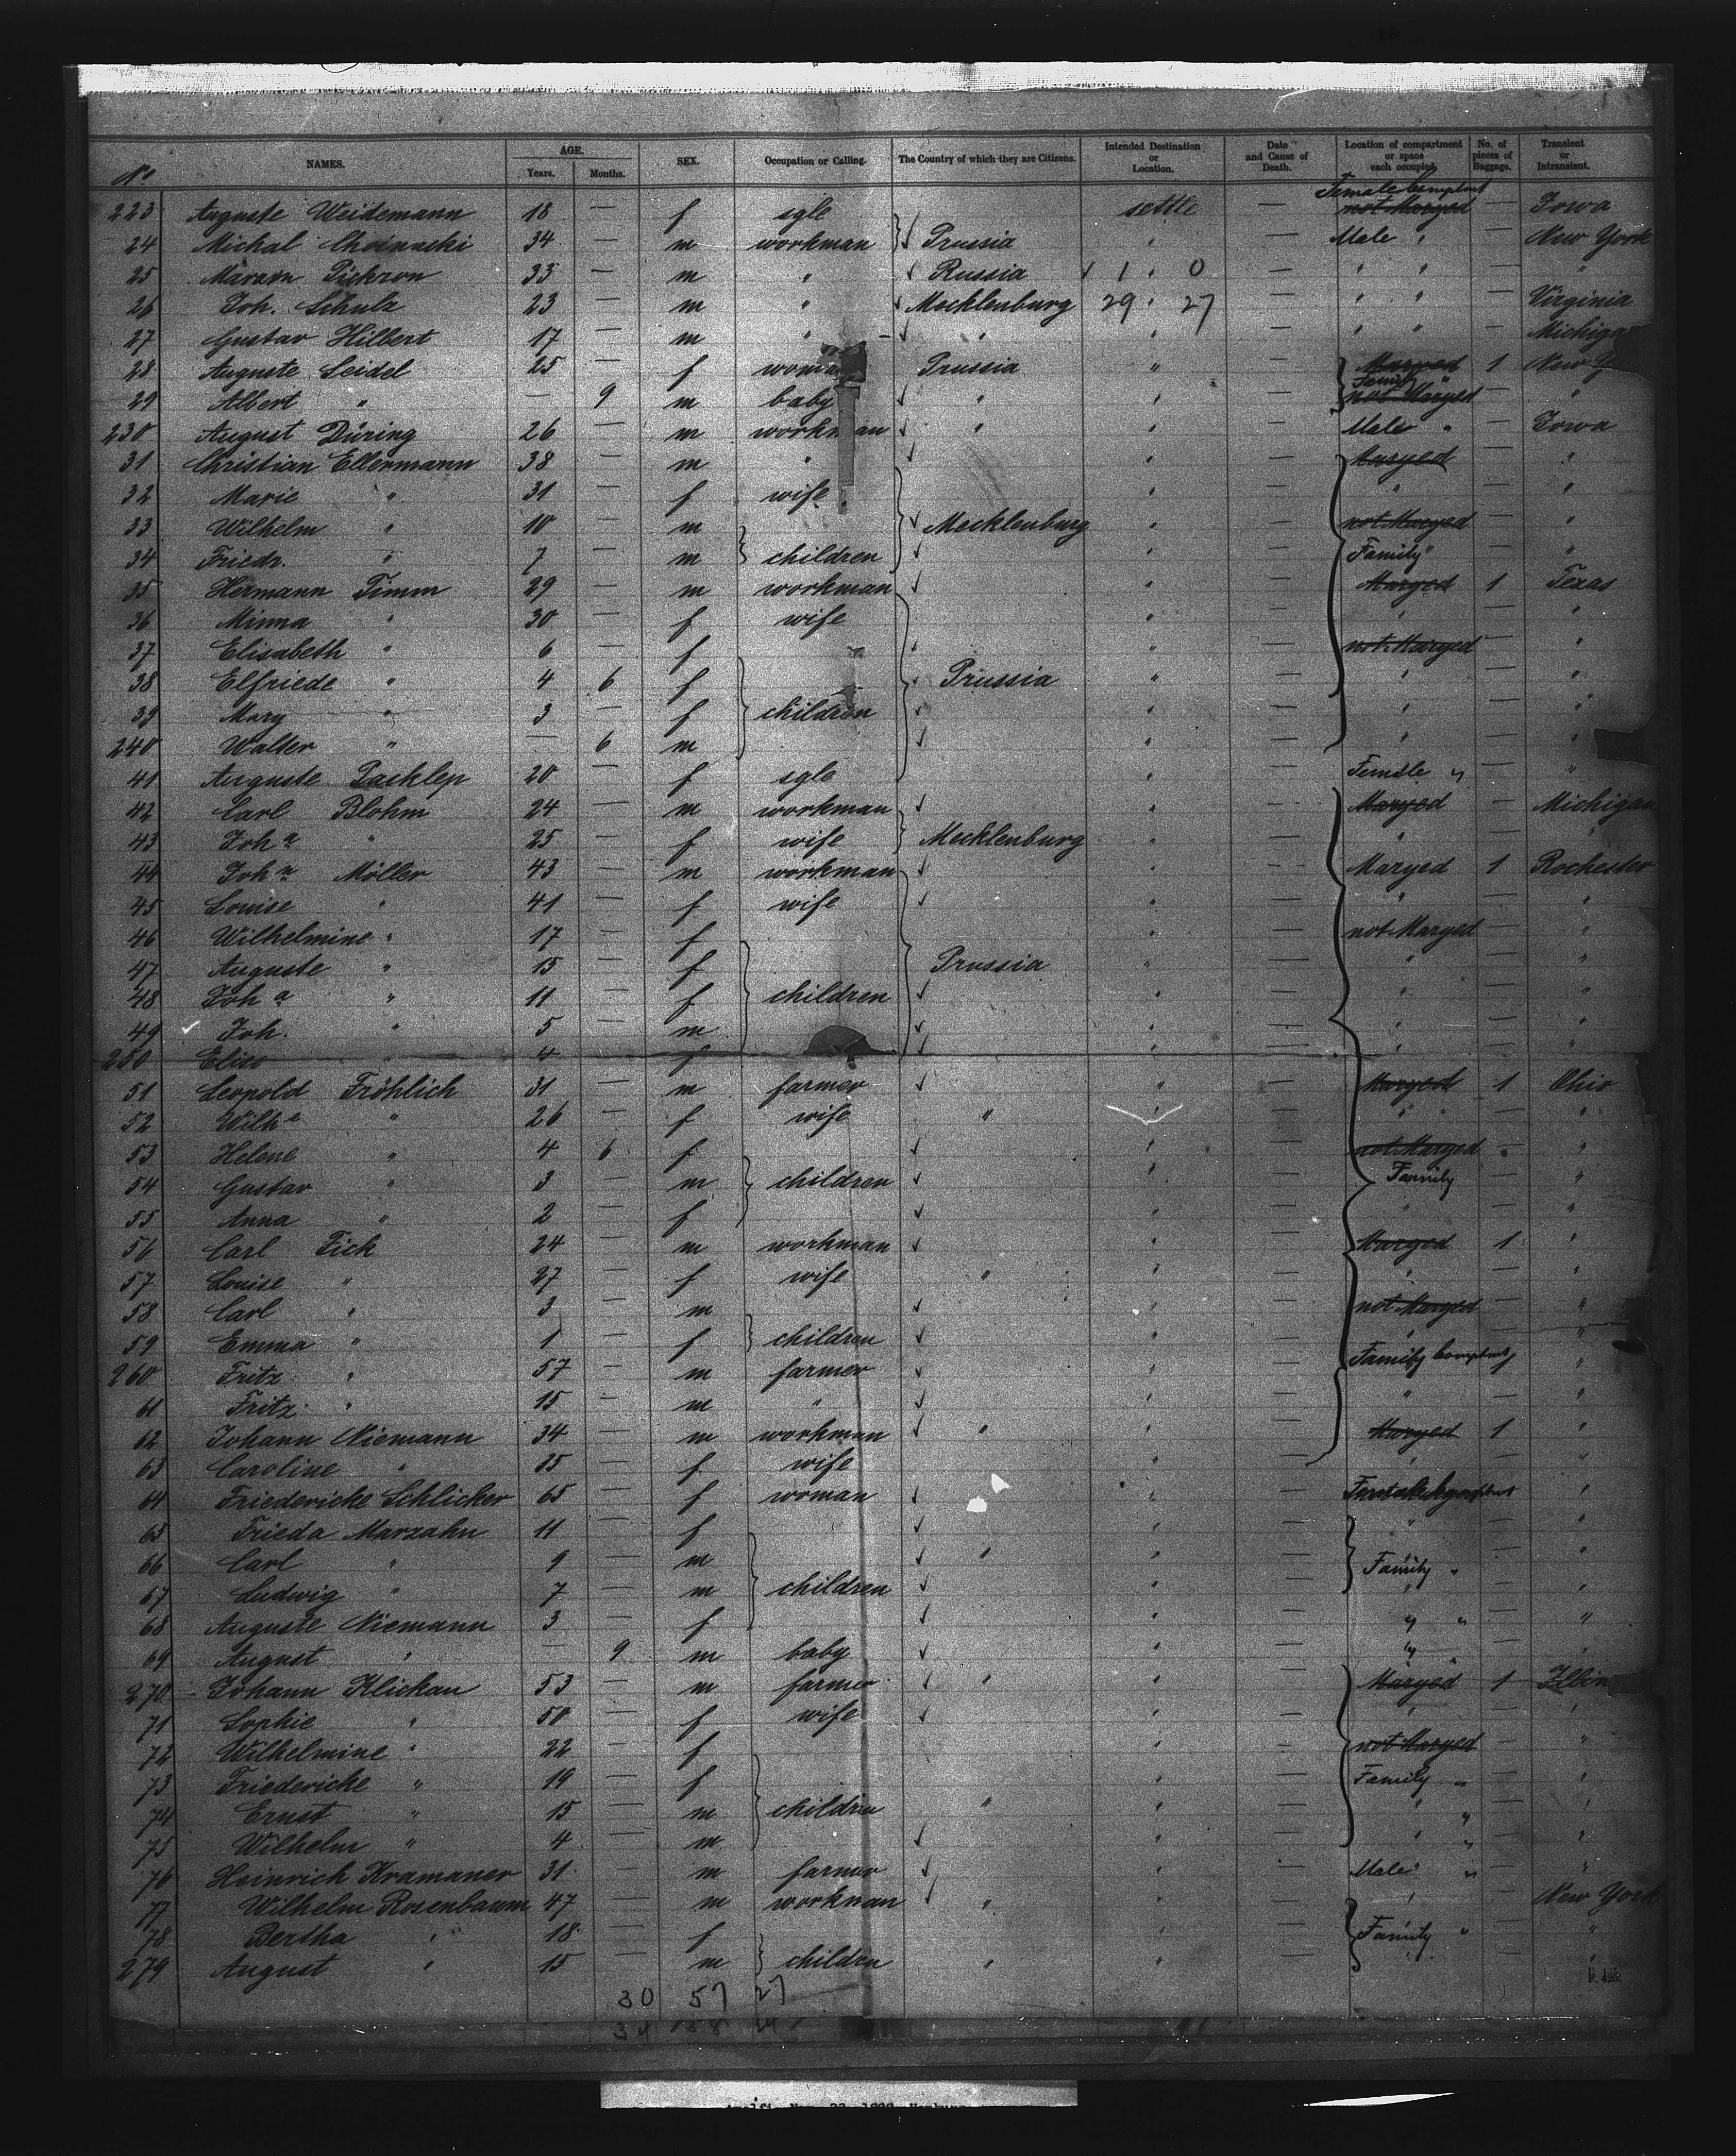 No. NAMES. AGE. Years. Months. SEX. Occupation or Calling. The Country of which they are Citizens. Intended Destination or Location. Date and Cause of Death. Location of compartment or space each occupied. No. of pieces of Baggage. Transient or Intransient.
223 Auguste Weidemann 18 — f sgle settle — Female Compmt not Maryed — Iowa
24 Michal Choinacki 34 — m workman Prussia " — Male " — New York
25 Pickron 33 — m " Russia 1 " 0 — " " — "
26 Joh. Schulz 23 — m " Mecklenburg 29 " 27 — " " — Virginia
27 Gustav Hilbert 17 — m " " " — " " — Michiga
28 Auguste Seidel 25 — f woma Prussia " — Maryed 1 New Y
29 Albert " — 9 m baby " " — Family " not Maryed — "
230 August Düring 26 — m workman " " — Male " — Iowa
31 Christian Ellermann 38 — m " " — Maryed "
32 Marie " 31 — f wife " — " "
33 Wilhelm " 10 — m Mecklenburg " — not Maryed "
34 Friedr. " 7 — m children " — Family " "
35 Hermann Timm 29 — m workman " — Maryed 1 Texas
36 Minna " 30 — f wife " — " "
37 Elisabeth " 6 — f " — not Maryed "
38 Elfriede " 4 6 f Prussia " — " "
39 Mary " 3 — f children " — " "
240 Walter " — 6 m " — " "
41 Auguste Packlep 20 — f sgle " — Female " "
42 Carl Blohm 24 — m workman " — Maryed — Michigan
43 Joha " 25 — f wife Mecklenburg " — " — "
44 Joha Möller 43 — m workman " — Maryed 1 Rochester
45 Louise " 41 — f wife " — " — "
46 Wilhelmine " 17 — f " — not Maryed — "
47 Auguste " 15 — f Prussia " — " — "
48 Joha " 11 — f children " — " — "
49 Joh. " 5 — m " — " — "
250 Elise " 4 — f " — " — "
51 Leopold Fröhlich 31 — m farmer " — Maryed 1 Ohio
52 Wilhe " 26 — f wife " " — " — "
53 Helene " 4 6 f " — not Maryed "
54 Gustav " 3 — m children " — Family — "
55 Anna " 2 — f " — " — "
56 Carl Fick 24 — m workman " — Maryed 1 "
57 Louise " 27 — f wife " " — " — "
58 Carl " 3 — m " — not Maryed — "
59 Emma " 1 — f children " — " — "
260 Fritz " 57 — m farmer " — Family Compmt — "
61 Fritz " 15 — m " " — " — "
62 Johann Niemann 34 — m workman " " — Maryed 1 "
63 Caroline " 35 — f wife " — " — "
64 Friedericke Schlicker 65 — f woman " — Female Compmt "
65 Frieda Marzahn 11 — f " — " — "
66 Carl " 9 — m " " — Family " — "
67 Ludwig " 7 — m children " — " — "
68 Auguste Niemann 3 — f " — " " — "
69 August " — 9 m baby " — " " — "
270 Johann Klickau 53 — m farmer " " — Maryed 1 Illin
71 Sophie " 50 — f wife " — " — "
72 Wilhelmine " 22 — f " — not Maryed — "
73 Friedericke " 19 — f " — Family " — "
74 Ernst " 15 — m children " " — " " — "
75 Wilhelm " 4 — m " — " " — "
76 Heinrich Kramaner 31 — m farmer " — Male " — "
77 Wilhelm Rosenbaum 47 — m workman " " — " — New York
78 Bertha " 18 — f " — Family " — "
279 August " 15 — m children " " — " — "
30 57 27